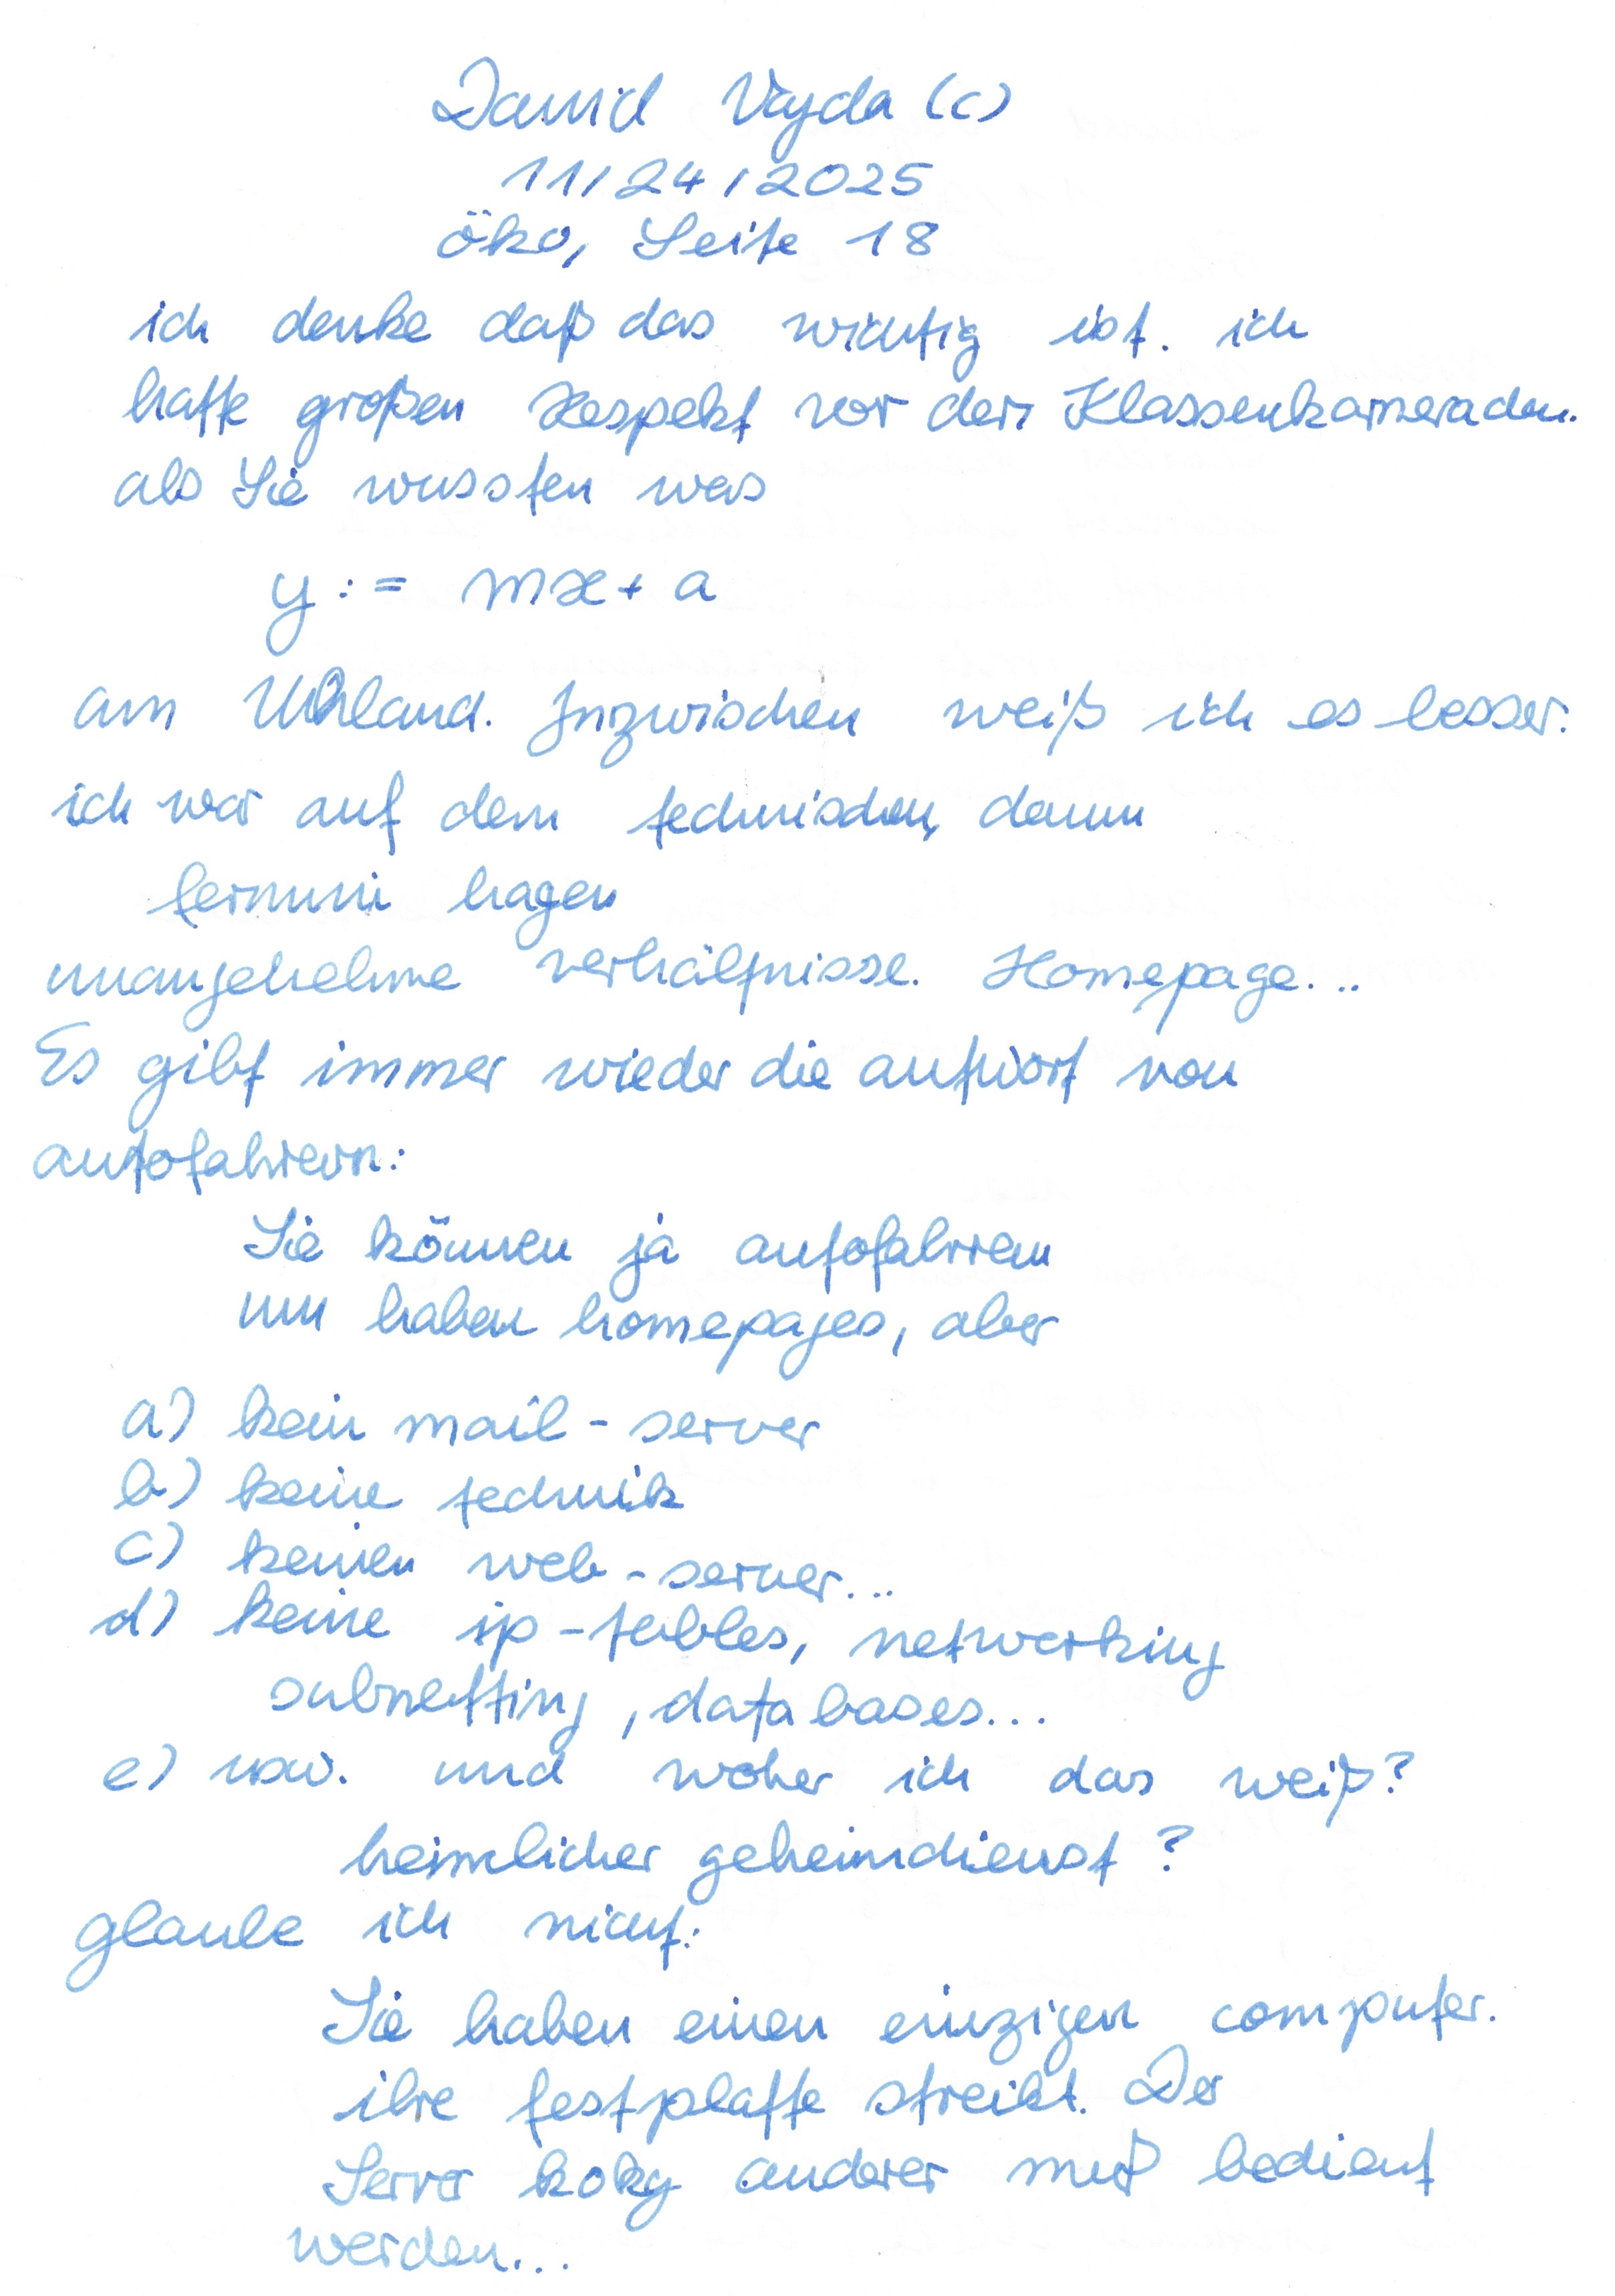 David Vajda (c)
11/24/2025
öko, Seite 18
ich denke daß das wichtig ist. ich
hatte großen Respekt vor den Klassenkameraden.
als Sie wussten was
y := mx + a
am Uhland. Inzwischen weiß ich es besser.
ich war auf dem technischen, dann
fernuni hagen
unangehehme verhältnisse. Homepage...
Es gibt immer wieder die antwort von
autofahrern:
Sie können ja autofahren
un haben homepages, aber
a) kein mail-server
b) keine technik
c) keinen web-server...
d) keine ip-tables, networking
subnetting, databases...
e) usw. und woher ich das weiß?
heimlicher geheimdienst?
glaube ich nicht:
Sie haben einen einzigen computer.
ihre festplatte streikt. Der
Server anderer muß bedient
werden...